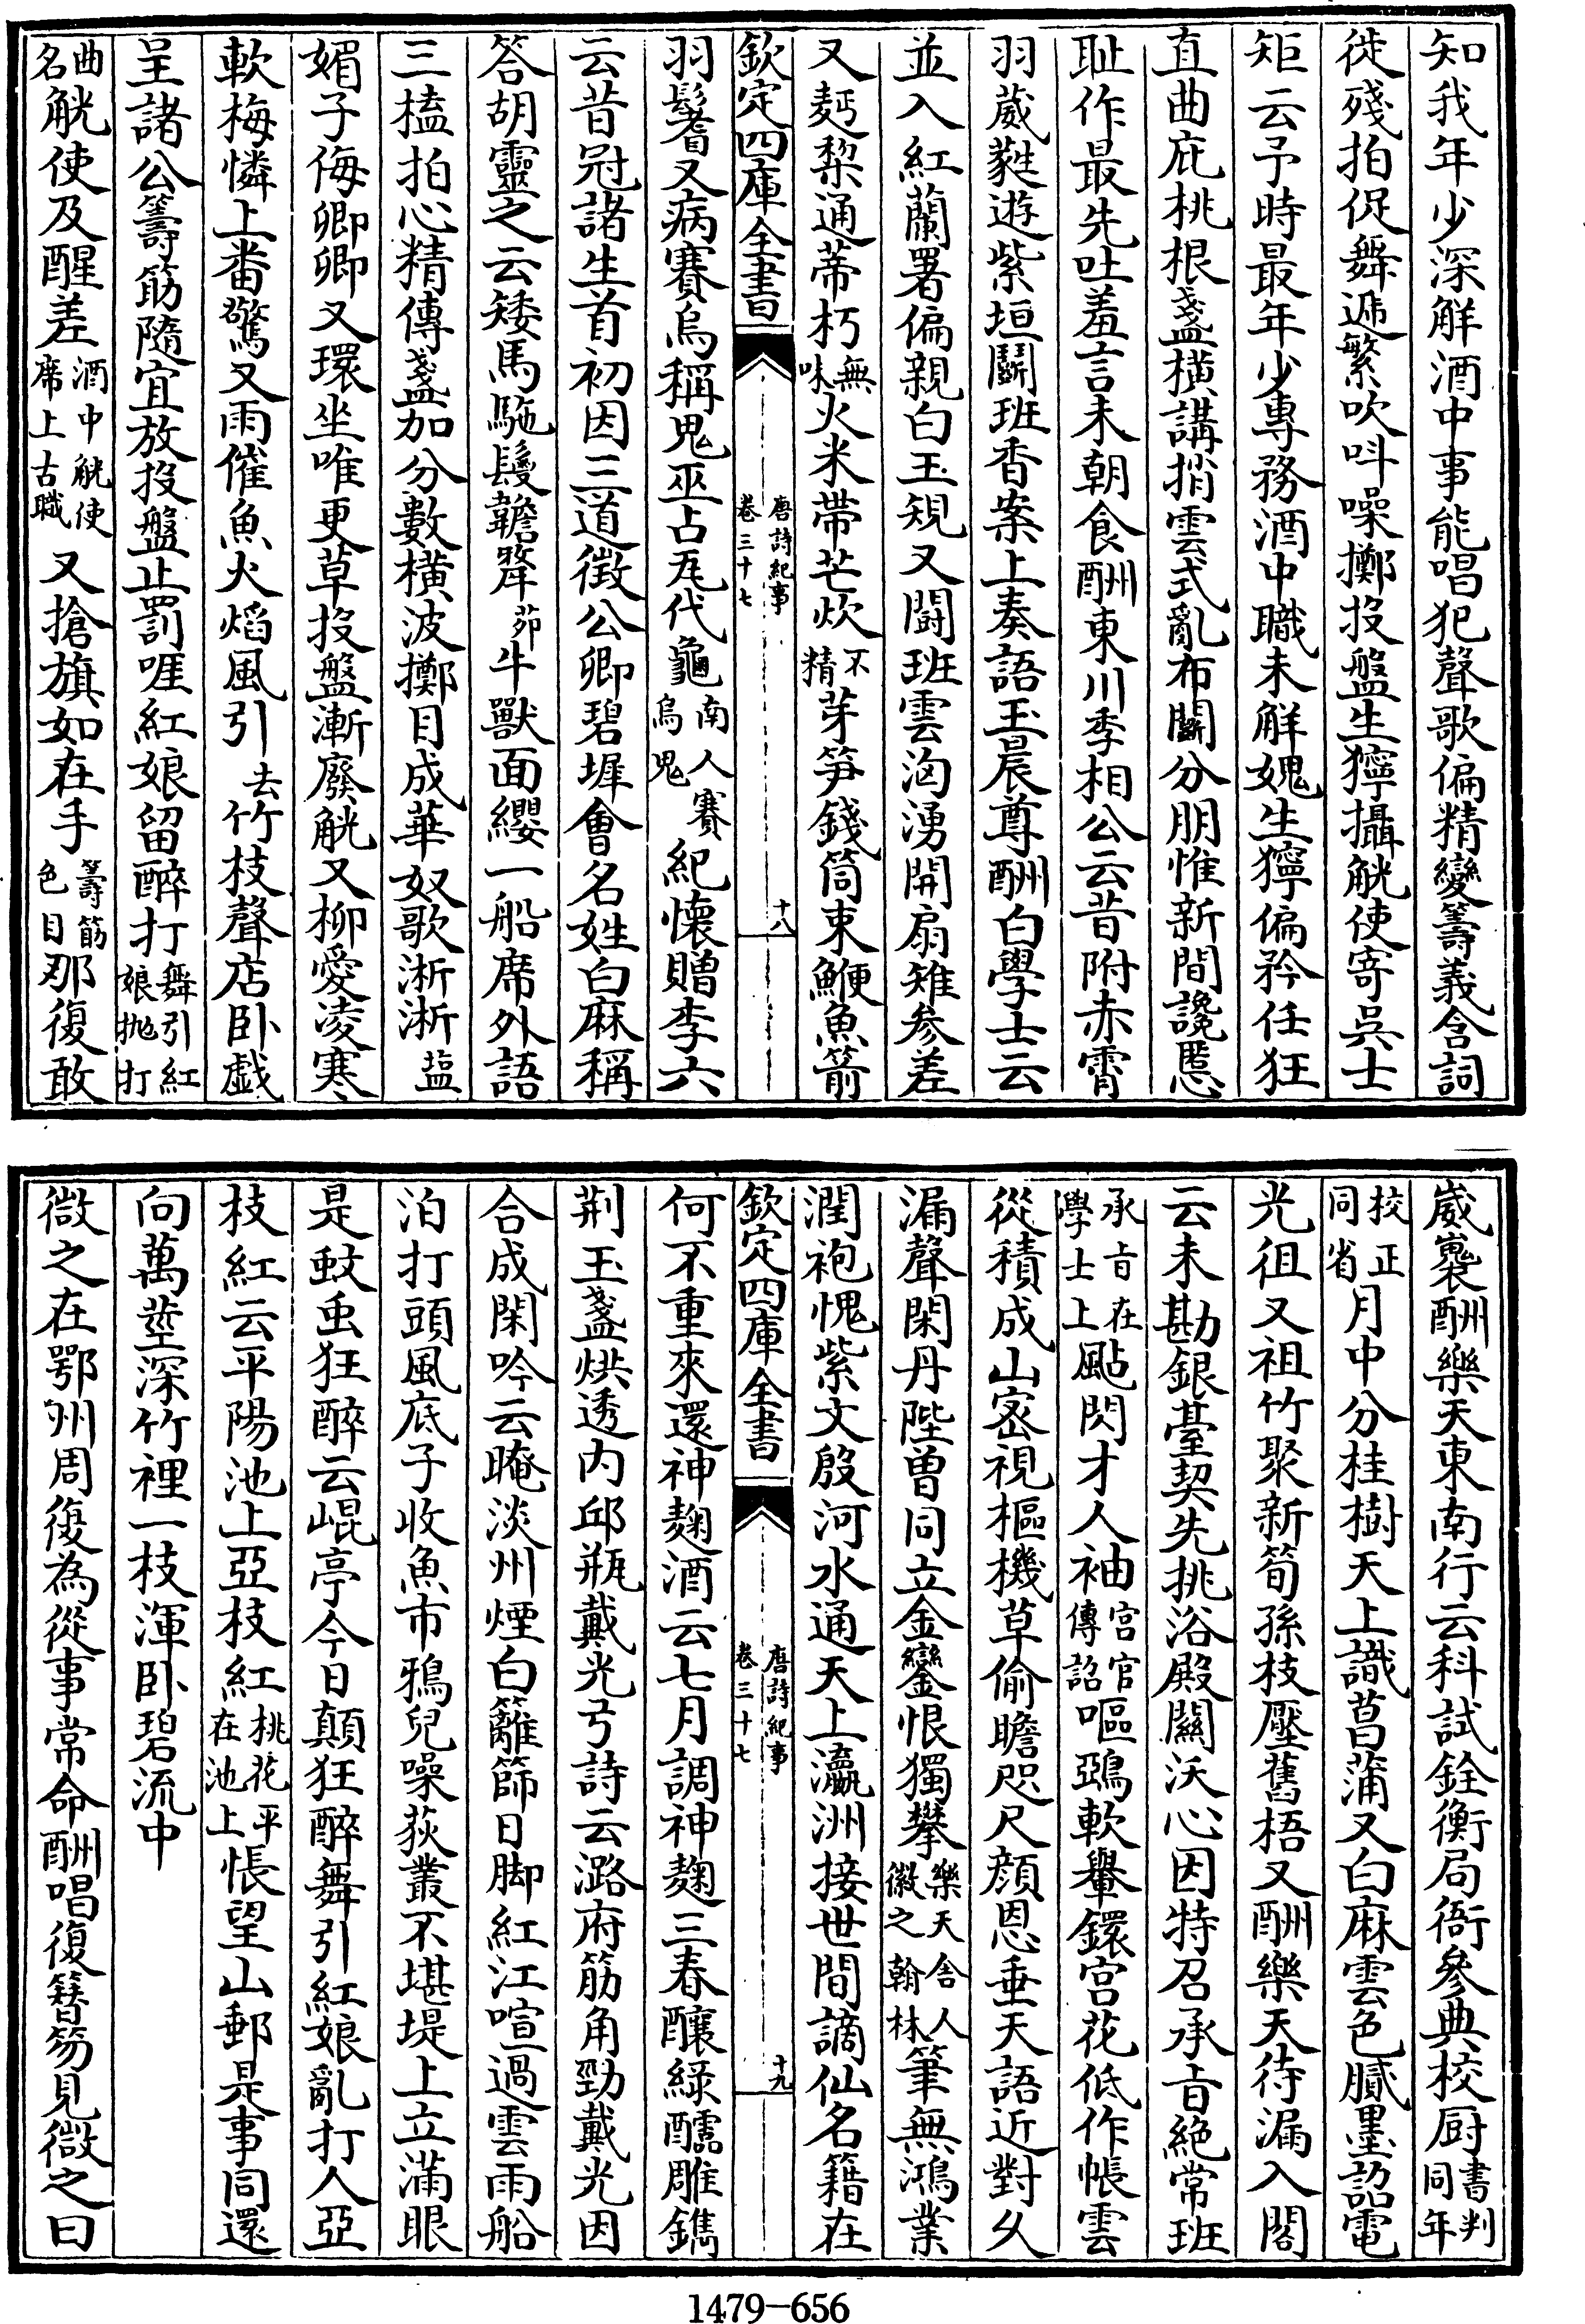 知我年少深解酒中事能唱犯聲歌偏精變籌義含詞
徒殘拍促舞遞繁吹叫噪擲投盤生獰攝觥使寄吳士
矩云予時最年少專務酒中職未解愧生獰偏矜任狂
直曲庇桃根盞横講捎雲式亂布鬭分朋惟新間讒慝
耻作最先吐羞言未朝食酬東川季相公云昔附赤霄
羽葳蕤遊紫垣鬭班香案上奏語玉晨尊酬白學士云
並入紅蘭署偏親白玉䂓又鬬班雲洶湧開扇雉參差
又麫棃通蒂朽無味火米帶芒炊不精芽笋錢筒束鯾魚箭
欽定四庫全書 唐詩紀事 卷三十七 十八
羽鬐又病賽烏稱鬼巫占瓦代龜南人賽烏鬼紀懷贈李六
云昔冠諸生首初因三道徵公卿碧墀會名姓白麻稱
答胡靈之云矮馬駞鬉韂犛茆牛獸面纓一船席外語
三榼拍心精傳盞加分數横波擲目成華奴歌淅淅盐
媚子侮卿卿又環坐唯更草投盤漸廢觥又柳愛凌寒
軟梅憐上畨驚又雨催魚火焰風引去竹枝聲店卧戯
呈諸公籌筯隨宜放投盤止罰啀紅娘留醉打舞引紅娘抛打
曲名觥使及醒差酒中觥使席上古職又搶旗如在手籌筯色目那復敢
崴裏酬樂天東南行云科試銓衡局衙參典校厨書判同年
校正同省月中分桂樹天上識菖蒲又白麻雲色膩墨詔電
光徂又祖竹聚新筍孫枝壓舊梧又酬樂天待漏入閣
云未勘銀臺契先挑浴殿關沃心因特召承㫖絶常班
承㫖在學士上颭閃才人袖宫官傳詔嘔鵶軟轝鐶宫花低作帳雲
從積成山密視樞機草偷瞻咫尺顔恩垂天語近對久
漏聲閑丹陛曽同立金鑾恨獨攀樂天舍人徽之翰林筆無鴻業
潤袍愧紫文殷河水通天上瀛洲接世間謫仙名籍在
欽定四庫全書 唐詩紀事 卷三十七 十九
何不重來還神麴酒云七月調神麴三春釀緑醽雕鐫
荆玉盞烘透内邱瓶戴光弓詩云潞府筋角勁戴光因
合成閑吟云晻淡洲煙白籬篩日脚紅江喧過雲雨船
泊打頭風底子收魚市鴉兒噪荻叢不堪堤上立滿眼
是蚊䖝狂醉云崐亭今日顛狂醉舞引紅娘亂打人亞
枝紅云平陽池上亞枝紅桃花平在池上悵望山郵是事同還
向萬莖深竹裡一枝渾卧碧流中
微之在鄂州周復為從事常命酬唱復簮笏見微之曰
1479-656